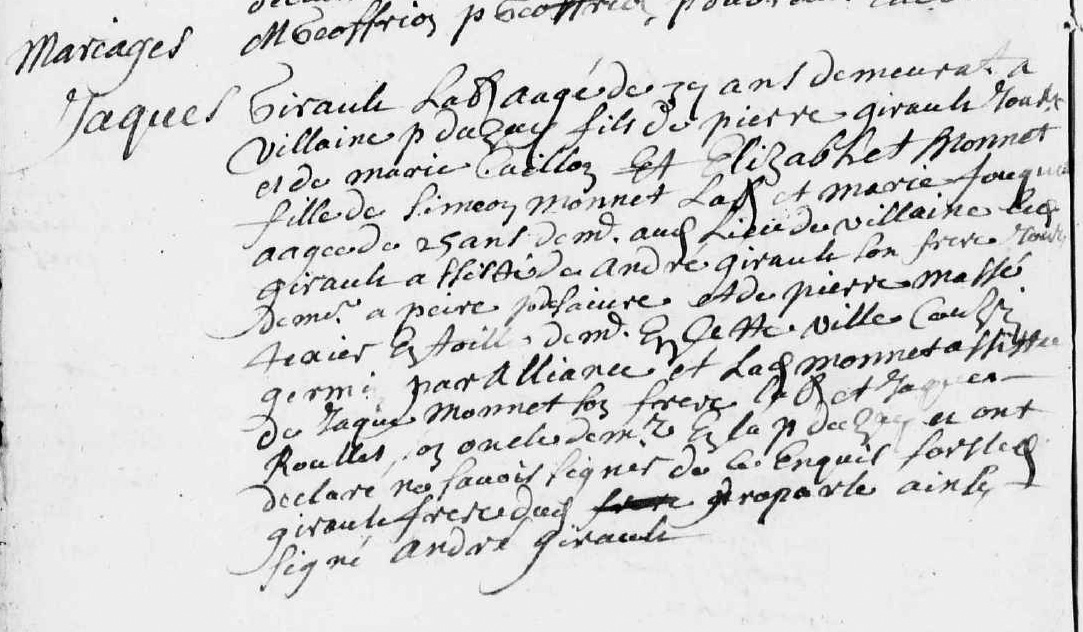 MGeoffrion p Geoffrion,
Mariages
Jaques Girault Lab aagé de 37 ans demeurat a
villaine p dazay fils de pierre girault
et de marie Caillon Et Elizabhet Monnet
fille de Simeon monnet Lab et marie fouque
aagee de 25 ans dem. aud Lieu de villaine led
girault assisté de andré girault son frere
demr. a peire p et de pierre massé
texier En toille dem. En Cette ville Cousin
germi par Alliance et Lad monnet assistee
de Jaque monnet son frere lab et Jaques
Roullet oncle demr. En la p dazay et ont
declaré ne savoir signer de ce Enquis fors led
girault frere dud proparle ainsy
signé andré girault